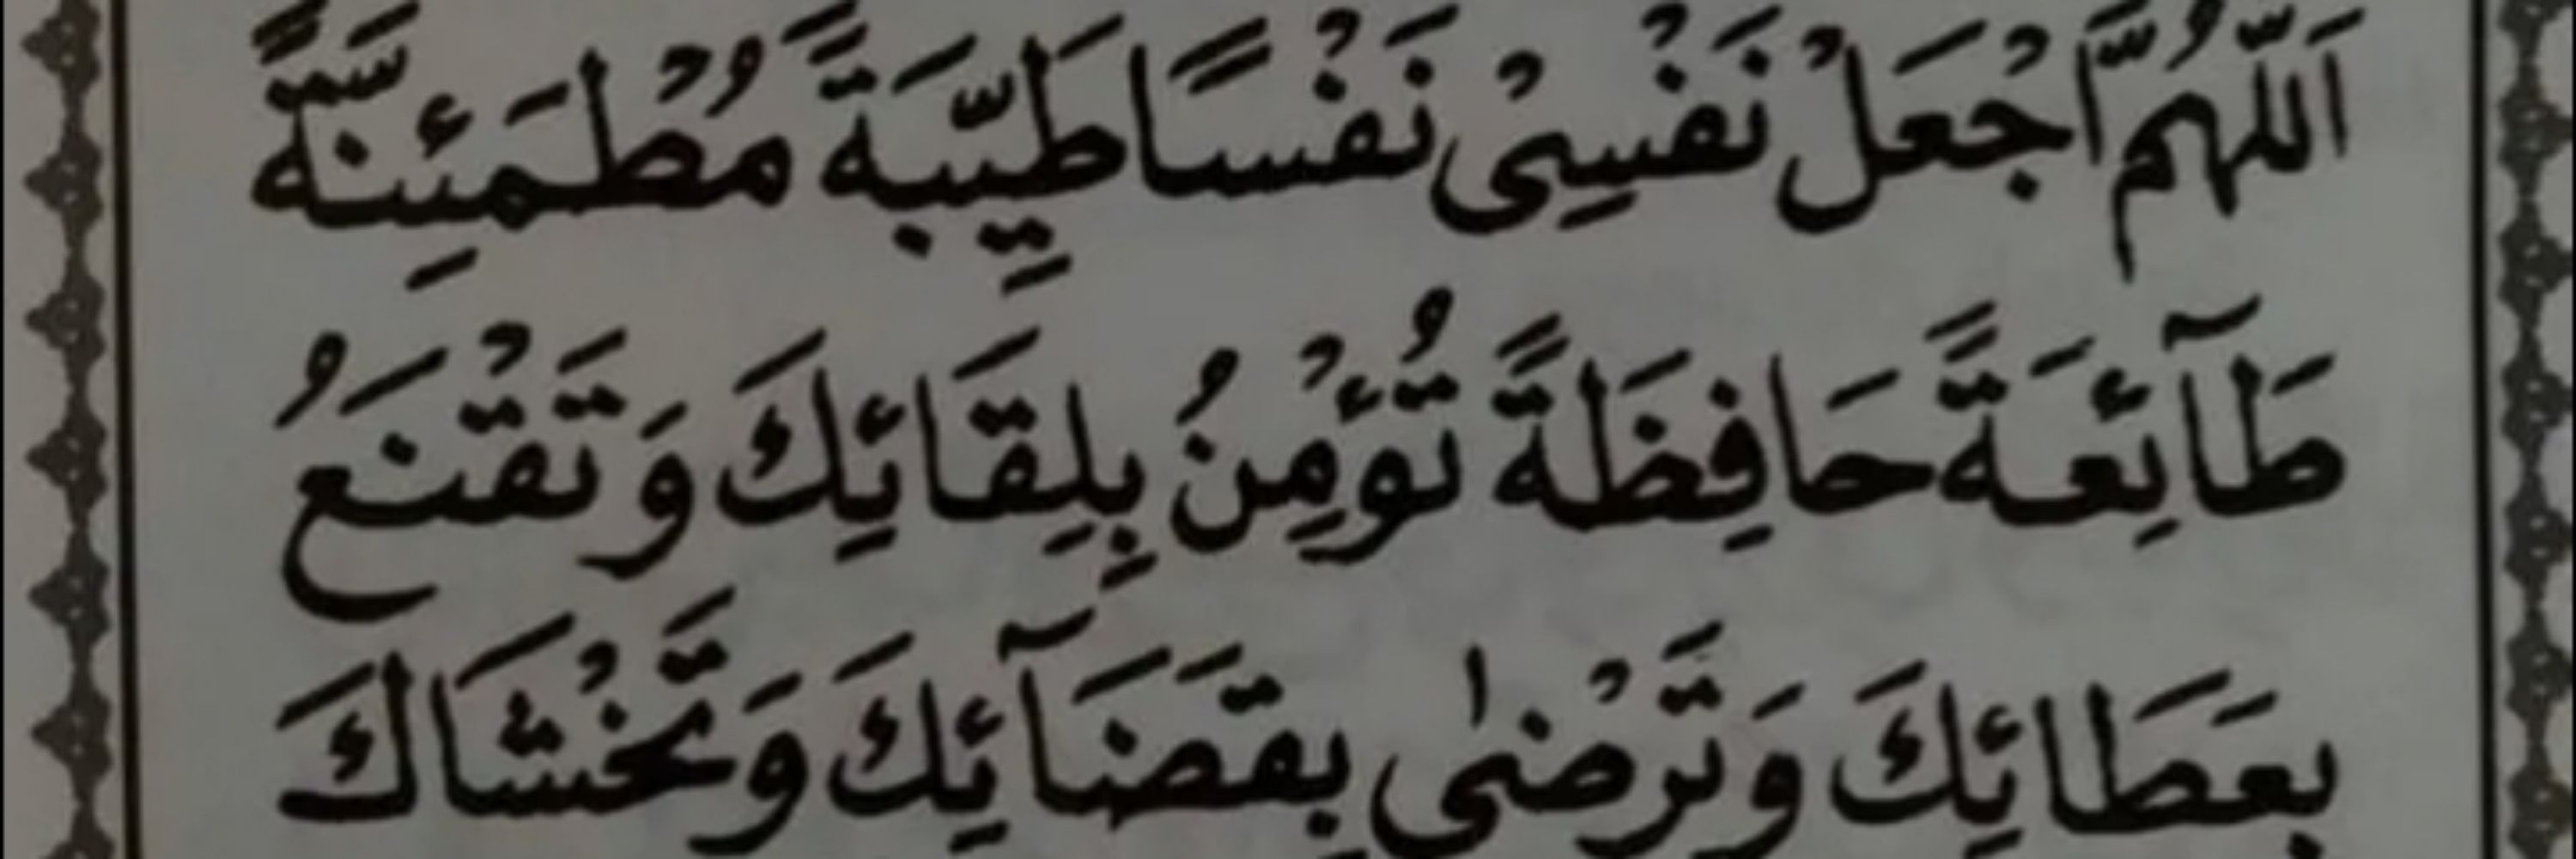 اَللّٰهُمَّ اجْعَلْ نَفْسِىْ نَفْسًا طَيِّبَةً مُطْمَئِنَّةً
طَآئِعَةً حَافِظَةً تُؤْمِنُ بِلِقَائِكَ وَتَقْنَعُ
بِعَطَائِكَ وَتَرْضٰى بِقَضَآئِكَ وَتَخْشَاكَ